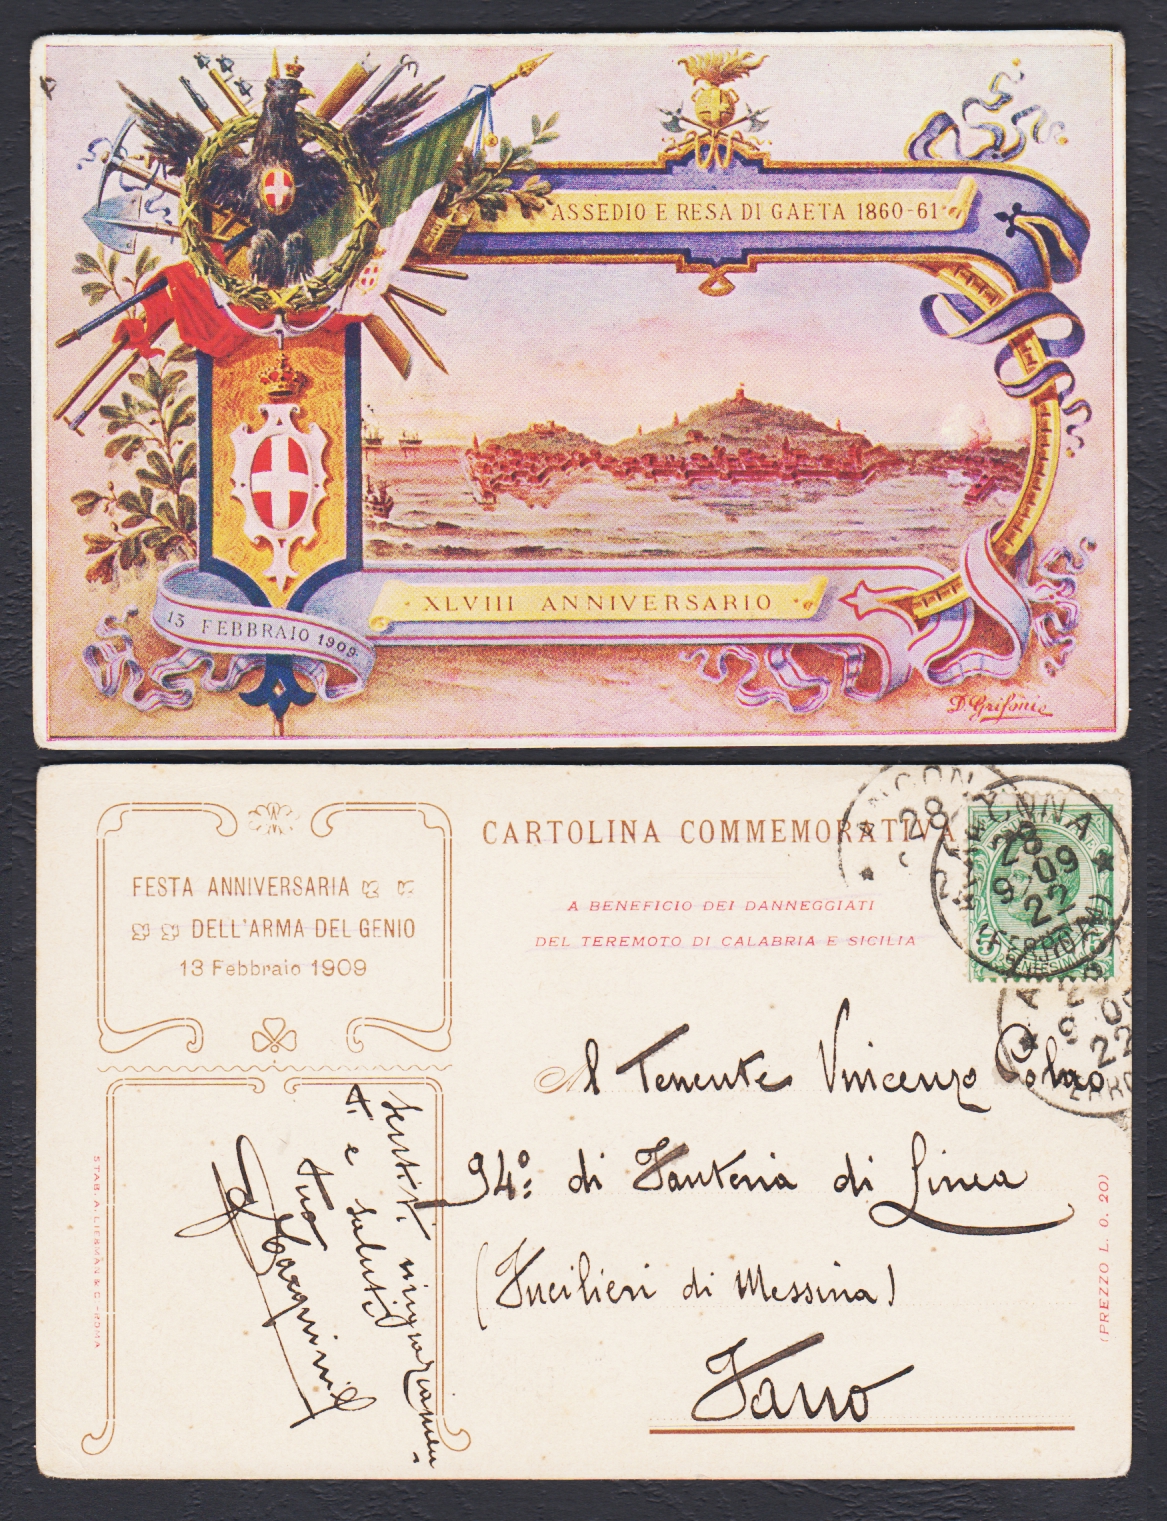 ASSEDIO E RESA DI GAETA 1860-61
XLVIII ANNIVERSARIO
13 FEBBRAIO 1909
D. Grifonie
CARTOLINA COMMEMORATIVA
A BENEFICIO DEI DANNEGGIATI
DEL TEREMOTO DI CALABRIA E SICILIA
FESTA ANNIVERSARIA
DELL'ARMA DEL GENIO
13 Febbraio 1909
28
9-09
22
(FERROVIA)
Al Tenente Vincenzo
94º: di Fanteria di Linea
(Fucilieri di Messina)
Fano
Sentiti ringraziamen-
ti e saluti
tuo
STAB. A. LIEBMAN & C. - ROMA
(PREZZO L. 0. 20)